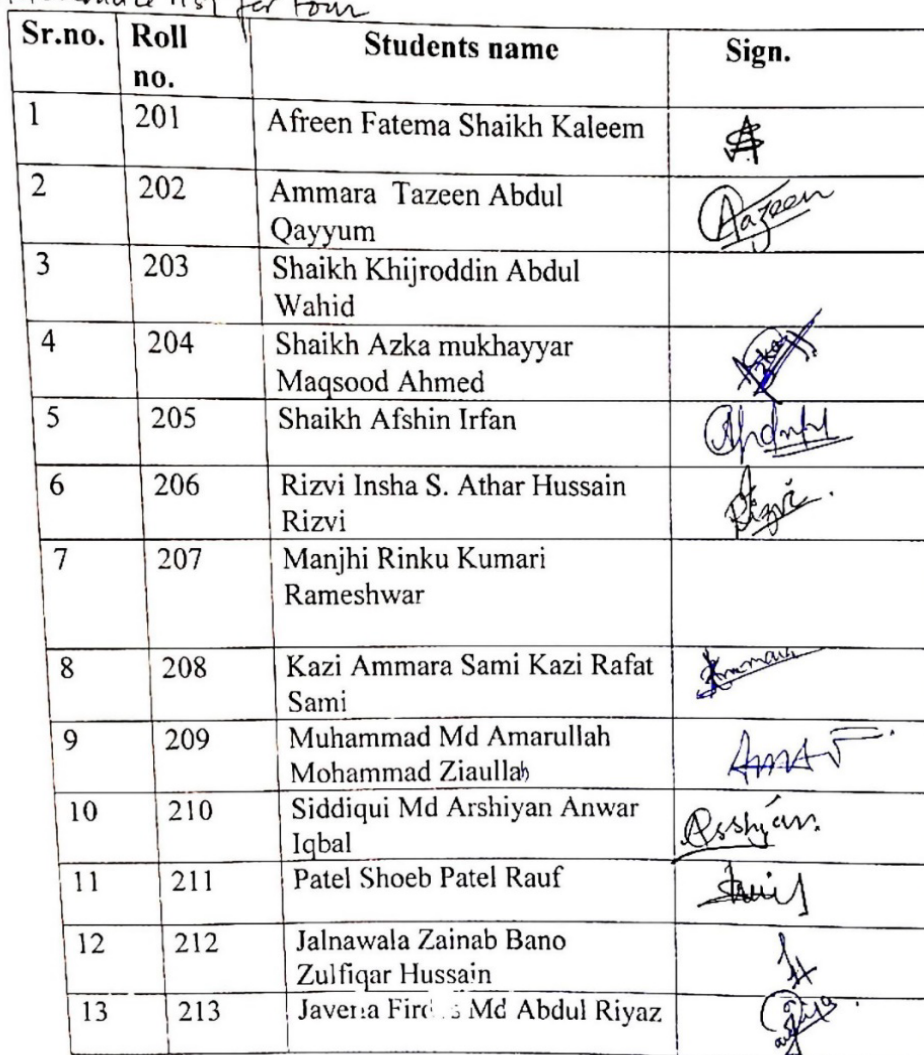 list for tour
Sr.no. Roll no. Students name Sign.
1 201 Afreen Fatema Shaikh Kaleem
2 202 Ammara Tazeen Abdul
Qayyum Aazeen
3 203 Shaikh Khijroddin Abdul
Wahid
4 204 Shaikh Azka mukhayyar
Maqsood Ahmed
5 205 Shaikh Afshin Irfan
6 206 Rizvi Insha S. Athar Hussain
Rizvi Rizvi
7 207 Manjhi Rinku Kumari
Rameshwar
8 208 Kazi Ammara Sami Kazi Rafat
Sami Ammara
9 209 Muhammad Md Amarullah
Mohammad Ziaullah
10 210 Siddiqui Md Arshiyan Anwar
Iqbal
11 211 Patel Shoeb Patel Rauf
12 212 Jalnawala Zainab Bano
Zulfiqar Hussain
13 213 Javeria Md Abdul Riyaz